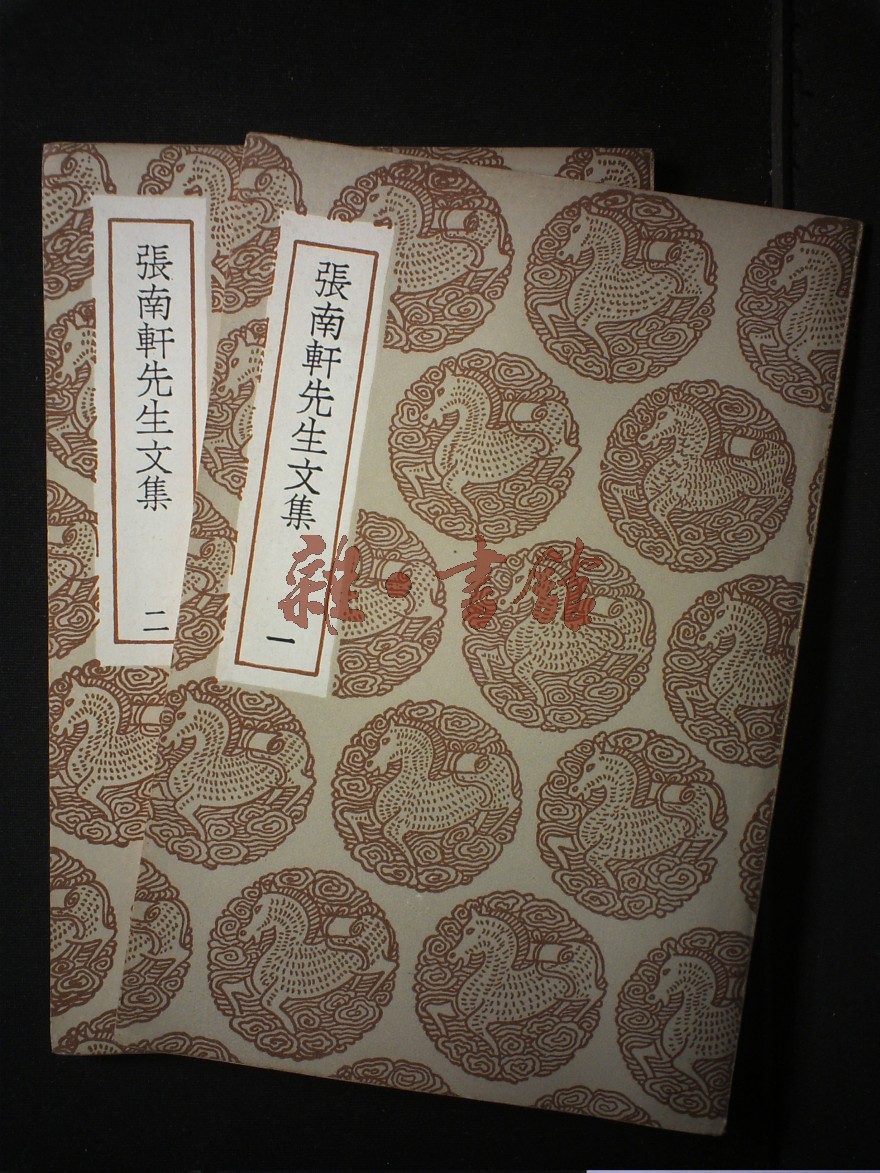 張南軒先生文集
一
張南軒先生文集
二
雜·書館